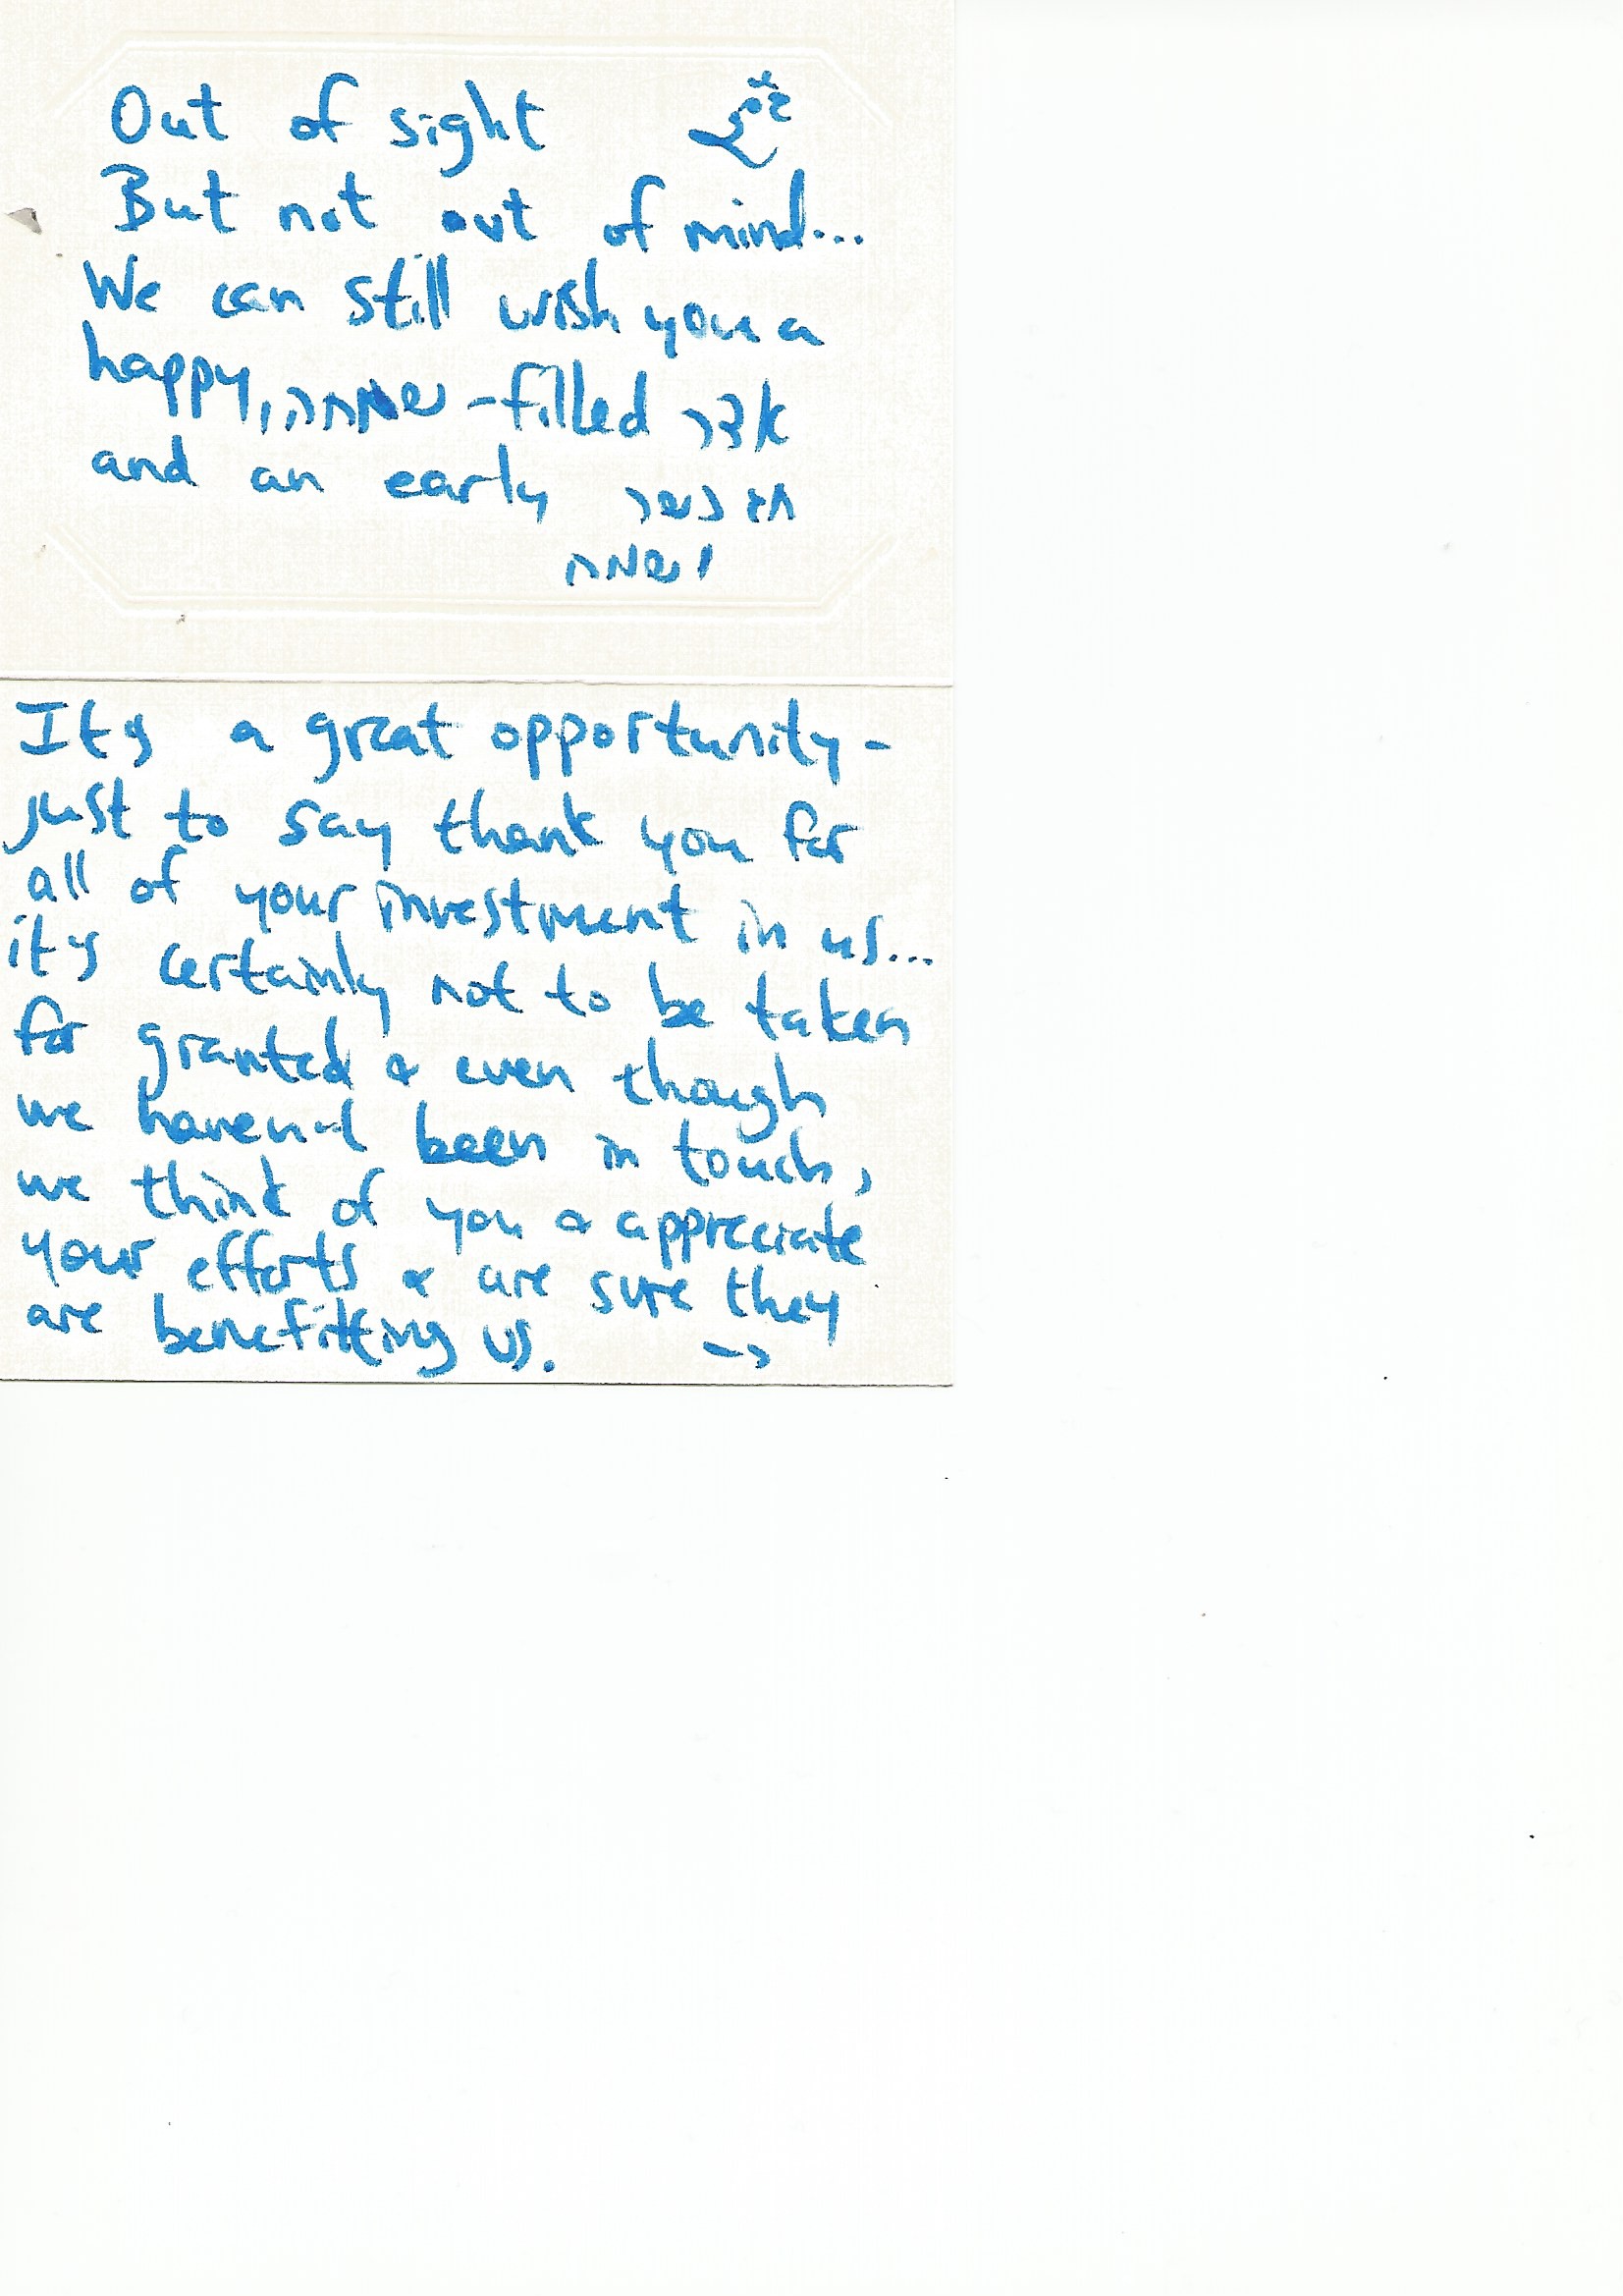 Out of sight
But not out of mind...
We can still wish you a
happy, שמחה-filled אדר
and an early חג כשר
ושמח
It's a great opportunity-
just to say thank you for
all of your investment in us...
it's certainly not to be taken
for granted & even though
we haven't been in touch,
we think of you & appreciate
your efforts & are sure they
are benefitting us. →